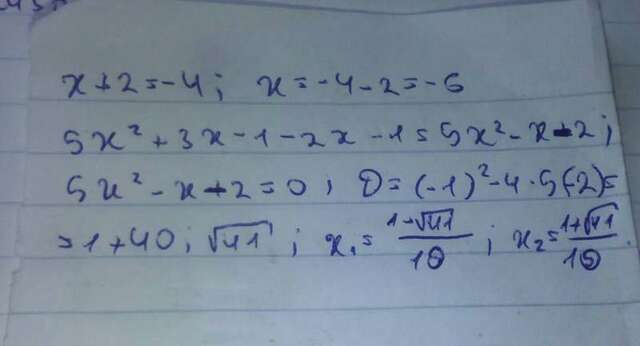 x+2=-4; x=-4-2=-6
5x²+3x-1-2x-1=5x²-x-2;
5x²-x-2=0; D=(-1)²-4·5(-2)=
=1+40; √41; x₁=(1-√41)/10; x₂=(1+√41)/10